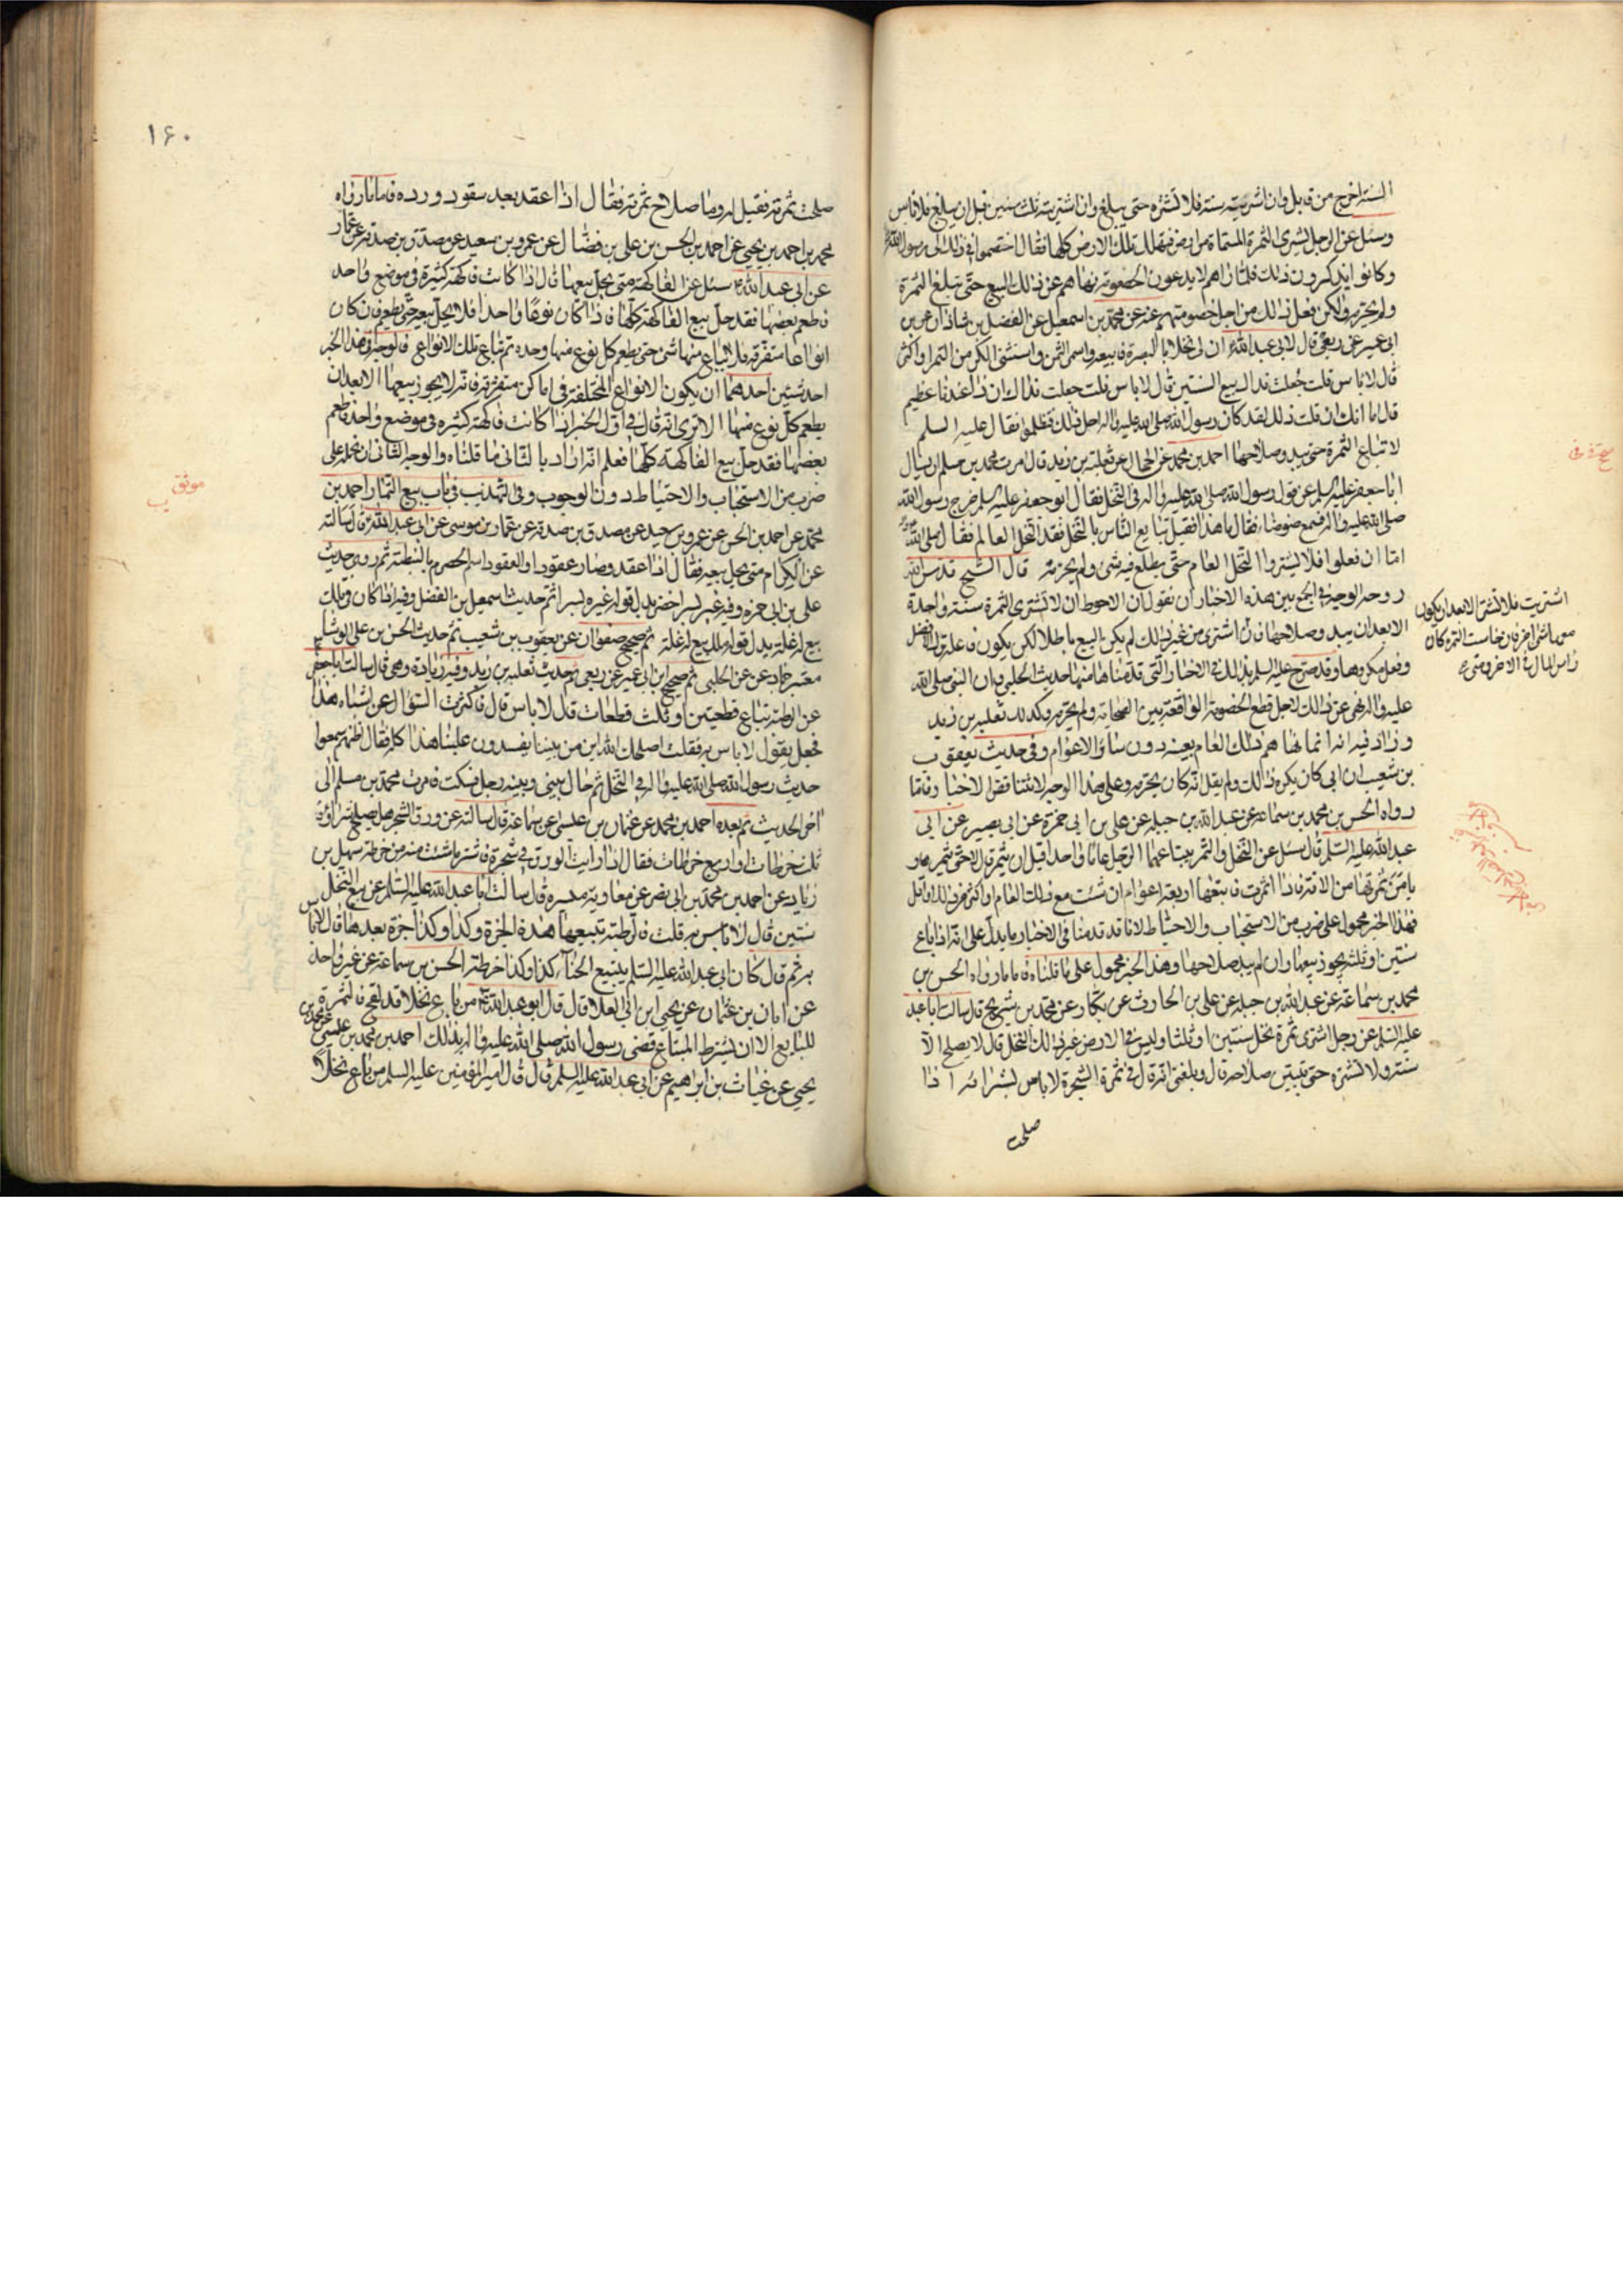 السنة اخرج من قابل وان اشتريته سنة فلا تشتره حتى يبلغ وان اشتريته ثلث سنين قبل ان يبلغ فلا باس
وسئل عن الرجل يشترى الثمرة المسماة من ارض فهلك تلك الارض كلها فقال اختصموا فى ذلك الى رسول الله
وكانوا يذكرون ذلك فلما راهم لا يدعون الخصومة نهاهم عن ذلك البيع حتى تبلغ الثمرة
ولم يحرمه ولكن فعل ذلك من اجل خصومتهم عنه عن محمد بن اسمعيل عن الفضل بن شاذان عن بن
ابى عمير عن ربعى قال قلت لابى عبد الله ان لى نخلا بالبصرة فابيعه واسمى الثمن واستثنى الكر من التمر او اكثر
قال لا باس قلت جعلت فداك بيع السنتين قال لا باس قلت جعلت فداك ان ذا عندنا عظيم
قال اما انك ان قلت ذلك لقد كان رسول الله صلى الله عليه واله احل ذلك فتظلموا فقال عليه السلم
لا تباع الثمرة حتى يبدو صلاحها احمد بن محمد عن الحجال عن ثعلبة بن زيد قال امرت محمد بن مسلم ان يسال
ابا جعفر عليه السلم عن قول رسول الله صلى الله عليه واله فى النخل فقال ابو جعفر عليه السلم خرج رسول الله
صلى الله عليه واله فسمع ضوضاء فقال ما هذا فقيل تبايع الناس بالنخل فقعد النخل العام فقال صلى الله
اما ان فعلوا فلا يشتروا النخل العام حتى يطلع فيه شئ ولم يحرمه قال الشيخ قدس الله
روحه الوجه فى الجمع بين هذه الاخبار ان نقول ان الاحوط ان لا تشترى الثمرة سنة واحدة
الا بعد ان يبدو صلاحها فان اشترى من غير ذلك لم يكن البيع باطلا لكن يكون فاعله ترك الافضل
وفعل مكروها وقد صرح عليه السلم بذلك فى الاخبار التى قدمناها منها حديث الحلبى وان النبى صلى الله
عليه واله نهى عن ذلك لاجل قطع الخصومة الواقعة بين الصحابة ولم يحرمه وكذلك ثعلبة بن زيد
وزاد فيه انه انما نهاهم ذلك العام بعينه دون سائر الاعوام وفى حديث يعقوب
بن شعيب ان ابى كان يكره ذلك ولم يقل انه كان يحرمه وعلى هذا الوجه لا تتنافى الاخبار فاما
رواه الحسن بن محمد بن سماعة عن عبد الله بن جبلة عن على بن ابى حمزة عن ابى بصير عن ابى
عبد الله عليه السلم قال سئل عن النخل والثمر يبتاعهما الرجل عاما واحدا قبل ان يثمر قال لا حتى يثمر
يامن ثمرتها من الافة فاذا اثمرت فابتعها اربعة اعوام ان شئت مع ذلك العام او اكثر من ذلك او اقل
فهذا الخبر محمول على ضرب من الاستحباب والاحتياط لانا قد قدمنا فى الاخبار ما يدل على انه اذا باع
سنتين او ثلثة يجوز بيعها وان لم يبد صلاحها وهذا الخبر محمول على ما قلناه فاما ما رواه الحسن بن
محمد بن سماعة عن عبد الله بن جبلة عن على بن الحارث عن بكار عن محمد بن شريح قال سالت ابا عبد
عليه السلم عن رجل اشترى ثمرة نخل سنتين او ثلثا وليس فى الارض غير ذلك النخل قال لا يصلح الا
سنة ولا تشتره حتى تبين صلاحه قال وبلغنى انه قال فى ثمرة الشجرة لا باس بشرائه اذا
صلحت
اشتريت فلا تشتر الا بعد ان يكون
راس المال فى الاخر
١۶٠
صلحت ثمرته فقيل له وما صلاح ثمرته فقال اذا عقد بعد سقود ورده فاما ما رواه
محمد بن احمد بن يحيى عن احمد بن الحسن بن على بن فضال عن عمرو بن سعيد عن مصدق بن صدقة عن عمار
عن ابى عبد الله سئل عن الفاكهة متى يحل بيعها قال اذا كانت فاكهة كثيرة فى موضع واحد
فاطعم بعضها فقد حل بيع الفاكهة كلها فاذا كان نوعا واحدا فلا يحل بيعه حتى يطعم فان كان
انواعا متفرقة فلا يباع منها شئ حتى يطعم كل نوع منها وحده ثم تباع تلك الانواع فالوجه فى هذا الخبر
احد شيئين احدهما ان يكون الانواع المختلفة فى اماكن متفرقة فانه لا يجوز بيعها الا بعد ان
يطعم كل نوع منها الا ترى انه قال فى اول الخبر اذا كانت فاكهة كثيرة فى موضع واحد فاطعم
بعضها فقد حل بيع الفاكهة كلها فعلم انه اراد بالثانى ما قلناه والوجه الثانى ان نحمله على
ضرب من الاستحباب والاحتياط دون الوجوب وفى التهذيب فى باب بيع الثمار احمد بن
محمد عن احمد بن الحسن عن عمرو بن سعيد عن مصدق بن صدقة عن عمار بن موسى عن ابى عبد الله قال سالته
عن الكرم متى يحل بيعه فقال اذا عقد وصار عقودا والعقود اسم الحصرم بالنبطية ثم روى حديث
على بن ابى حمزة وفيه غير بسر اخضر بدل قوله غيره بسرا ثم حديث اسمعيل بن الفضل وفيه اذا كان فى تلك
بيع له غلة بدل قوله للبيع له غلة ثم صحيح صفوان عن يعقوب بن شعيب ثم حديث الحسن بن على الوشا
معتبر حماد عن الحلبى ثم صحيح ابن ابى عمير عن ربعى ثم حديث ثعلبة بن زيد وفيه زيادة وهى قال سالت ابا جعفر
عن الرطبة تباع قطعتين او ثلث قطعات قال لا باس قال فاكثرت السؤال عن اشباه هذا
فجعل يقول لا باس به فقلت اصلحك الله ان من بيننا يفسدون علينا هذا كله فقال اظنهم سمعوا
حديث رسول الله صلى الله عليه واله فى النخل ثم حال بينى وبينه رجل فسكت فامرت محمد بن مسلم الى
اخر الحديث ثم بعده احمد بن محمد عن عثمان بن عيسى عن سماعة قال سالته عن ورق الشجر هل يصلح شراؤه
ثلث خرطات او اربع خرطات فقال اذا رايت الورق فى شجرة فاشتر ما شئت منه من خرطة سهل بن
زياد عن احمد بن محمد بن ابى نصر عن معاوية بن ميسرة قال سالت ابا عبد الله عليه السلم عن بيع النخل
سنتين قال لا باس به قلت فالرطبة نبيعها هذه الجزة وكذا وكذا جزة بعدها قال لا باس
به ثم قال كان ابى عبد الله عليه السلم يبيع الحناء كذا وكذا خرطة الحسن بن سماعة عن غير واحد
عن ابان بن عثمان عن يحيى ابن ابى العلا قال قال ابو عبد الله من باع نخلا قد لقح فالثمرة
للبايع الا ان يشترط المبتاع قضى رسول الله صلى الله عليه واله بذلك احمد بن محمد بن عيسى عن محمد بن
يحيى عن غياث بن ابراهيم عن ابى عبد الله عليه السلم قال قال امير المؤمنين عليه السلم من باع نخلا
موثق